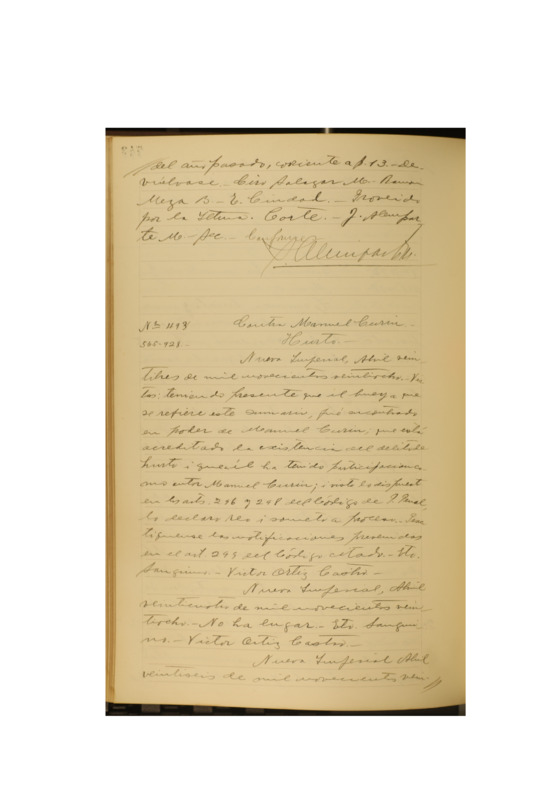 del año pasado, corriente a f 13. - De-
vuélvase. - Ciro Salazar M. - Roman
Meza B - E. Ciudad. - Proveido
por la Iltma. Corte. - J. Alempar
te M. - Sec. - Conforme
J. Alemparte M.
Nº 1198 Contra Manuel Curin.
Hurto. -
Nueva Imperial, Abril vein
titres de mil novecientos veintiocho. Vis
tos: teniendo presente que el buey a que
se refiere este sumario, fué encontrado
en poder de Manuel Curin; que está
acreditado la existencia del delito de
hurto i que él ha tenido participacion co
mo autor Manuel Curin; i visto lo dispuesto
en los arts. 276 y 278 del Código de P. Penal,
lo declaro reo i someto a proceso. Prac
tiquense las notificaciones prevenidas
en el art 299 del Código citado. Sto.
Sanguino. - Victor Ortiz Castro -
Nueva Imperial, Abril
veinticuatro de mil novecientos vein
tiocho. - No ha lugar. - Sto. Sangui
no. - Victor Ortiz Castro -
Nueva Imperial Abril
veintiseis de mil novecientos vein-